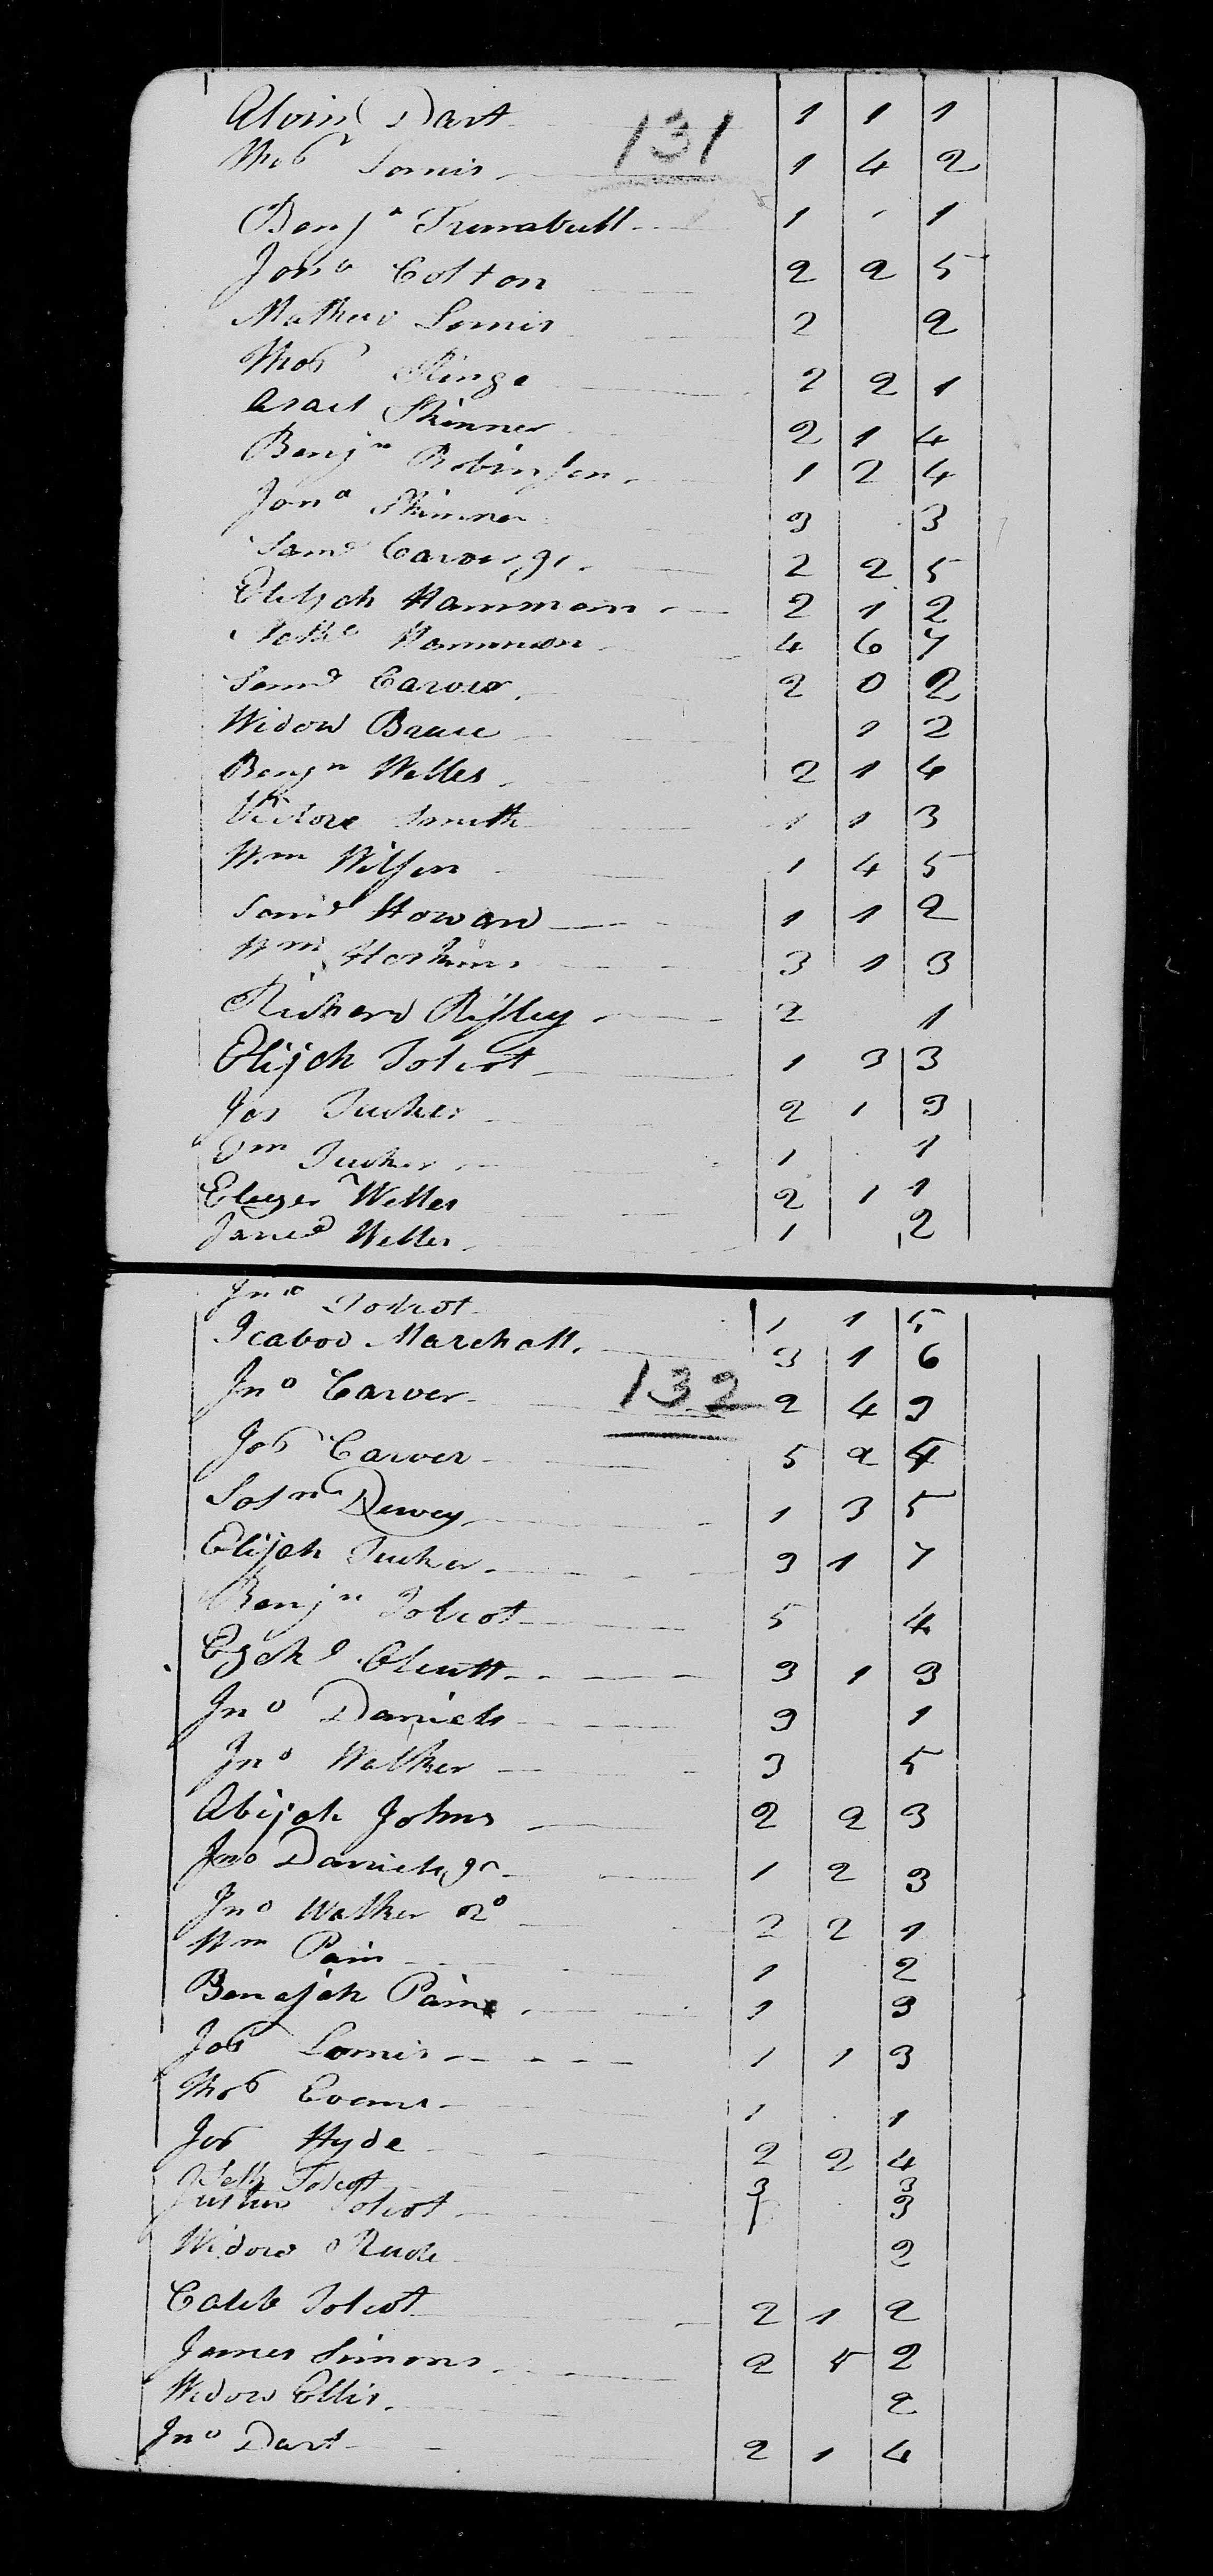 Alvin Dart 1 1 1
131
Thos Lomis 1 4 2
Benjn Trumabull 1 1
Jona Colton 2 2 5
Mathew Lomis 2 2
Thos 2 2 1
Asael Skinner 2 1 4
Benjn Robinson 1 2 4
Jona Skinner 3 3
Saml Carver jr 2 2 5
Elijah Hammon 2 1 2
Hammon 4 6 7
Saml Carver 2 0 2
Widow Brace 1 2
Benjn Welles 2 1 4
Smith 1 1 3
Wm Wilson 1 4 5
Saml Howard 1 1 2
Wm Hoskins 3 1 3
Richard Risley 2 1
Elijah Tolcot 1 3 3
Jos Tucker 2 1 3
Wm Tucker 1 1
Eleazer Welles 2 1 1
Jared Welles 1 2
Jno Tolcot 1 1 5
Icabod Marchall 3 1 6
132
Jno Carver 2 4 3
Jos Carver 5 2 4
Solmn Dewey 1 3 5
Elijah Tucker 3 1 7
Benjn Tolcot 5 4
Ezekl Olcutt 3 1 3
Jno Daniels 3 1
Jno Walker 3 5
Abijah Johns 2 2 3
Jno Daniels jr 1 2 3
Jno Walker 2o 2 2 1
Wm Pain 1 2
Benajah Paine 1 3
Jos Lomis 1 1 3
Thos Evens 1 1
Jos Hyde 2 2 4
Tolcot 3 3
Justus Tolcot 1 3
Widow Rude 2
Caleb Tolcot 2 1 2
James Simons 2 5 2
Widow Ellis 2
Jno Dart 2 1 4